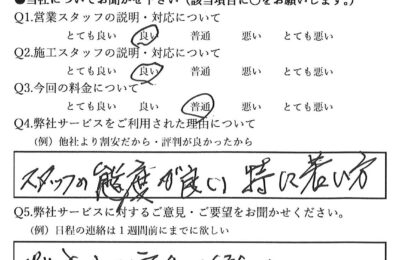 ●当社についてお聞かせ下さい(該当項目に○をお願いします。)
Q1.営業スタッフの説明・対応について
とても良い 良い 普通 悪い とても悪い
Q2.施工スタッフの説明・対応について
とても良い 良い 普通 悪い とても悪い
Q3.今回の料金について
とても良い 良い 普通 悪い とても悪い
Q4.弊社サービスをご利用された理由について
(例)他社より割安だから・評判が良かったから
スタッフの態度が良い 特に若い方
Q5.弊社サービスに対するご意見・ご要望をお聞かせください。
(例)日程の連絡は1週間前にまでに欲しい